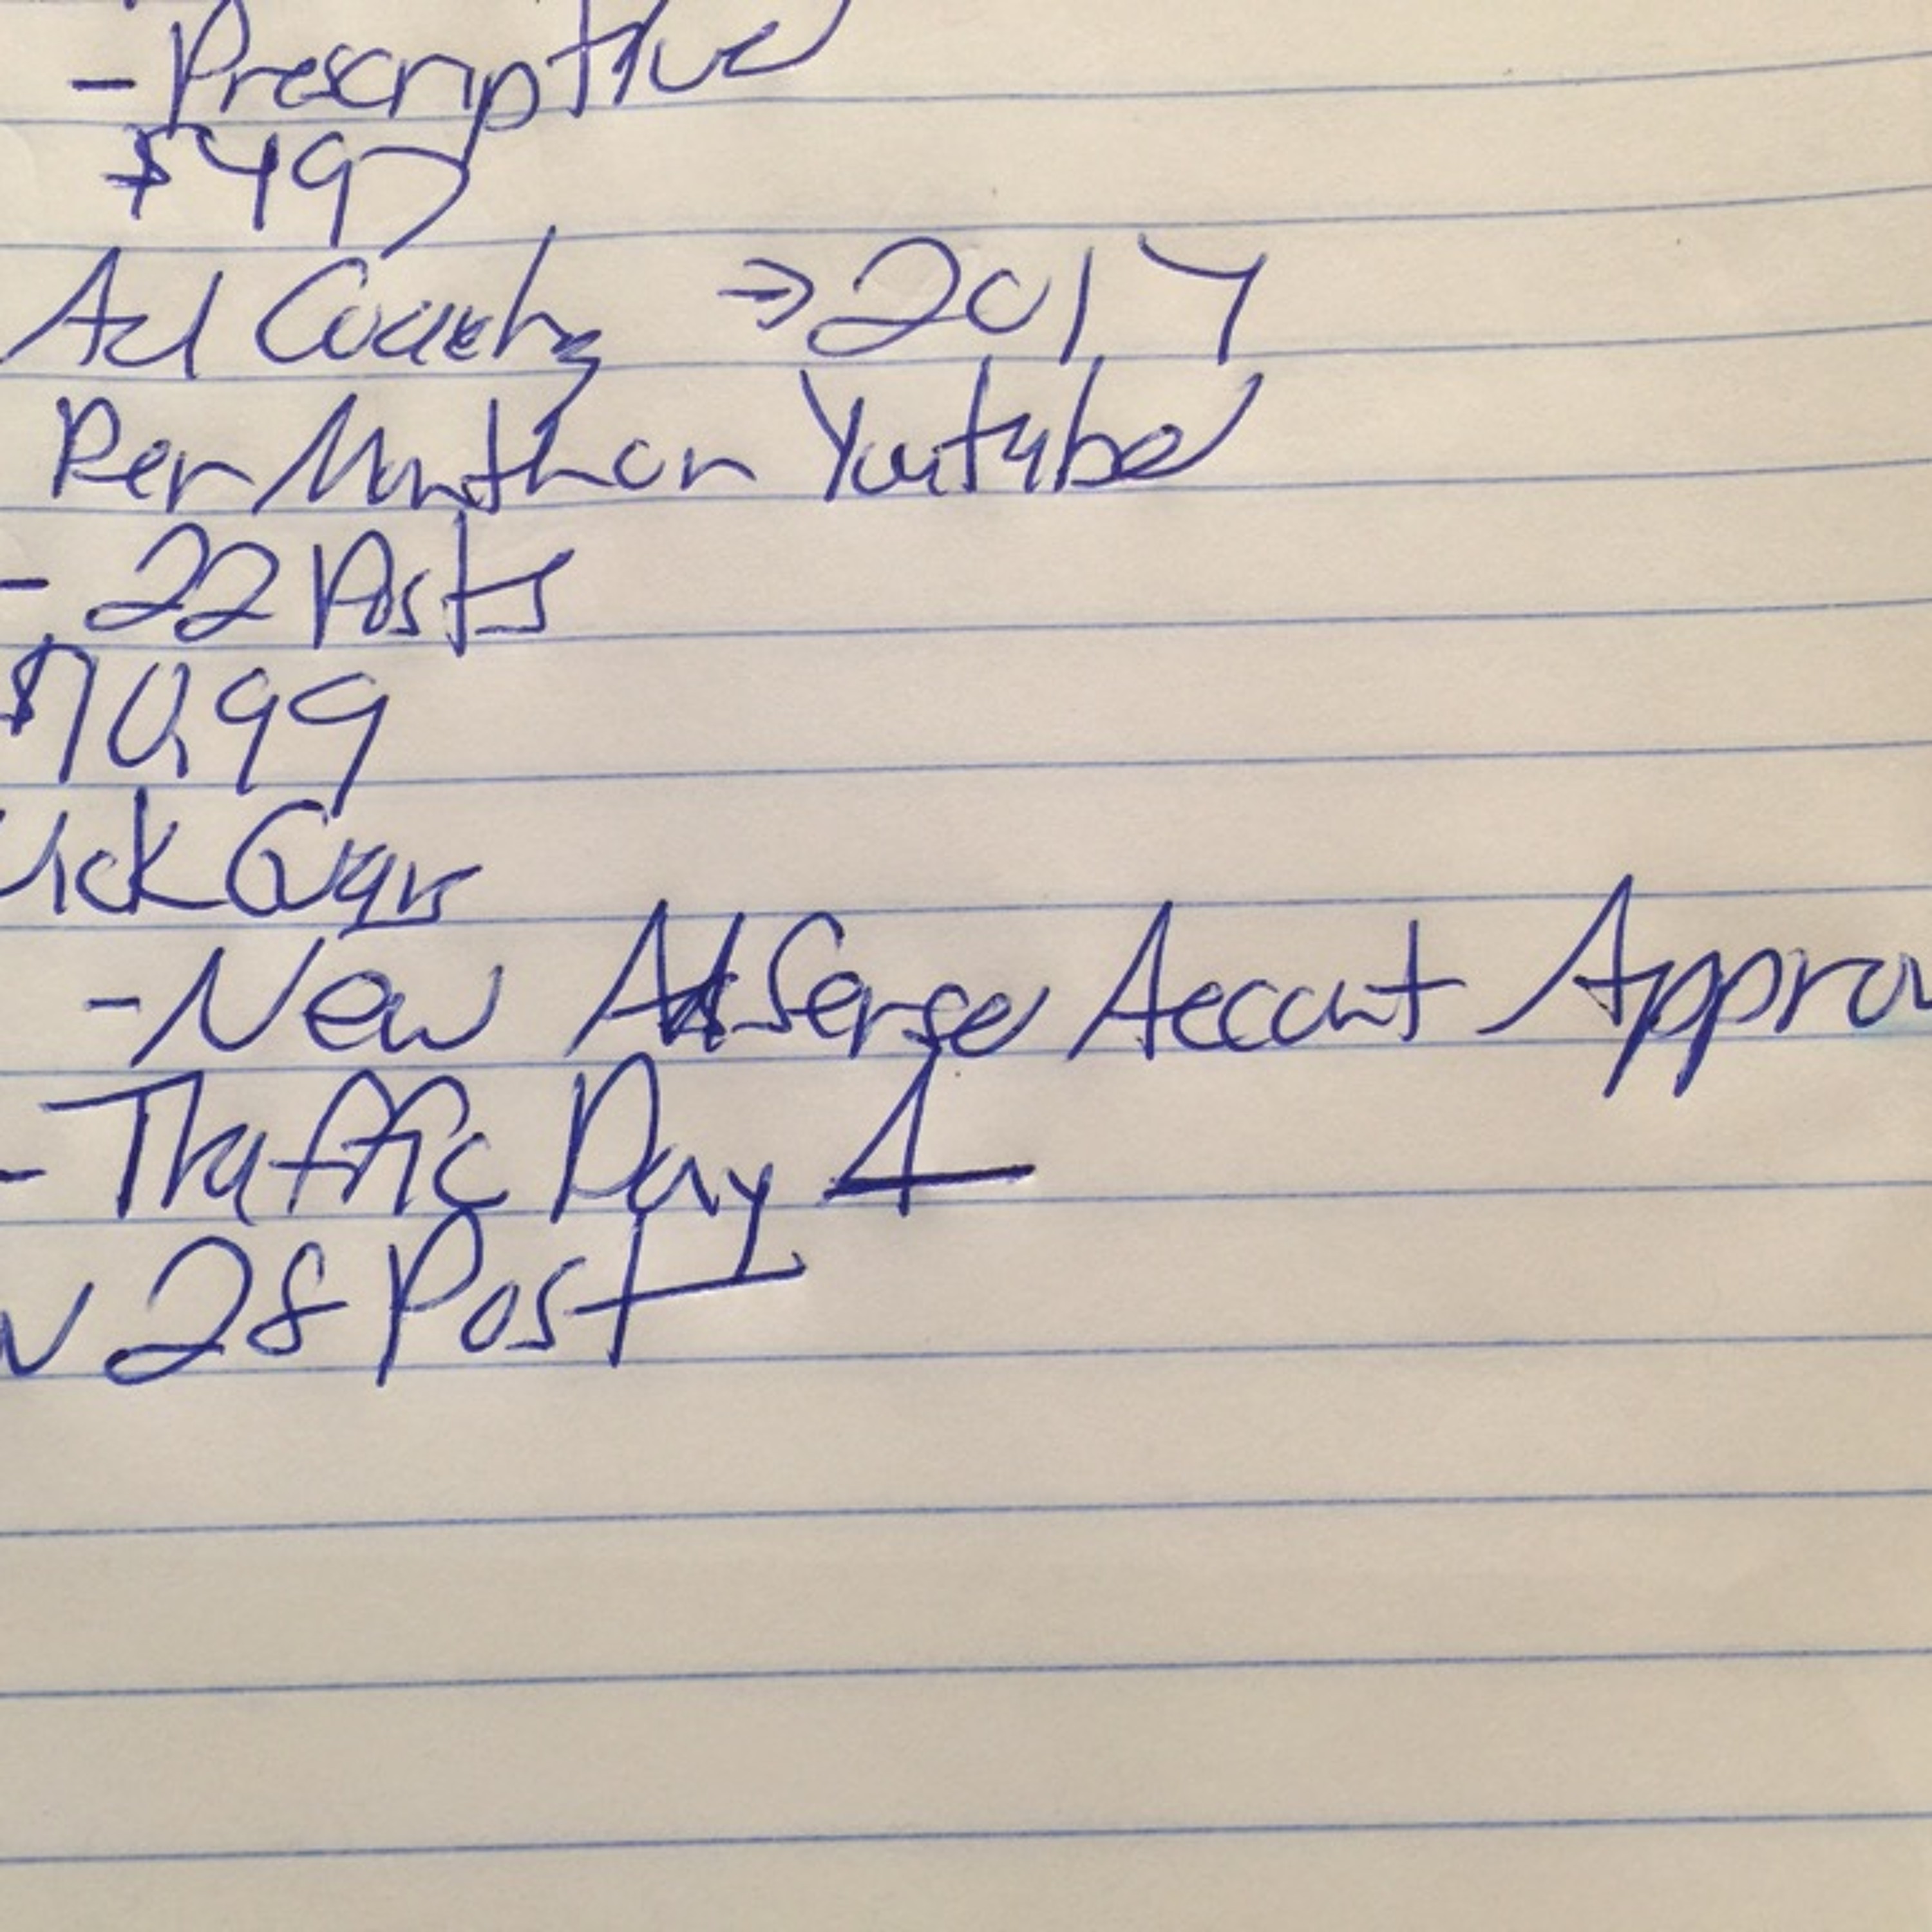 - Prescriptive
$497
Ad Coach → 2017
Per Month on Youtube
- 22 Posts
$70.99
- New AdSense Account Approv
- Traffic Day 4
28 Post